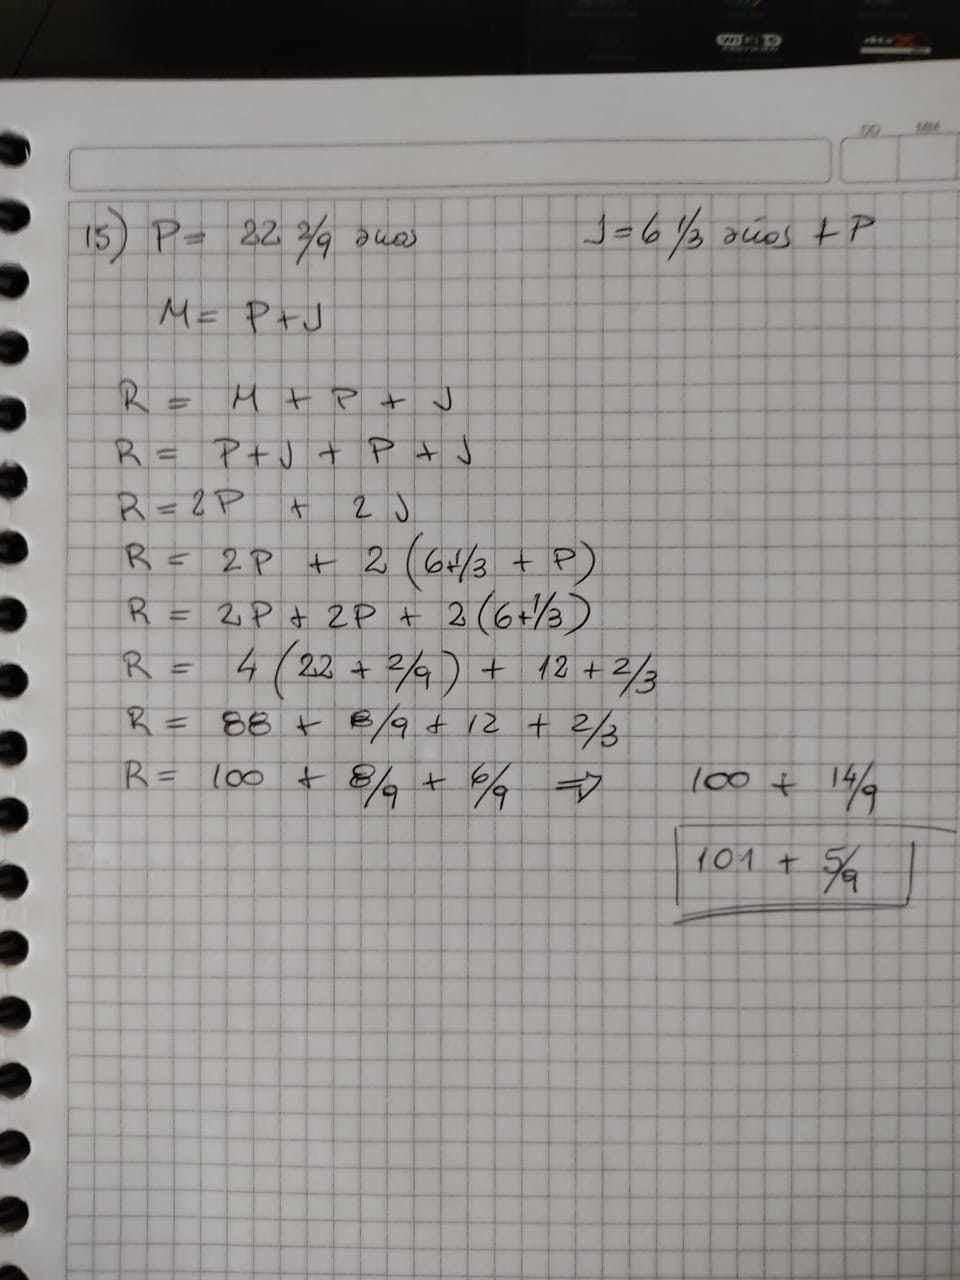 DD MM
15) P = 22 2/9 años J = 6 1/3 años + P
M = P + J
R = M + P + J
R = P + J + P + J
R = 2P + 2J
R = 2P + 2 (6+1/3 + P)
R = 2P + 2P + 2 (6+1/3)
R = 4 (22 + 2/9) + 12 + 2/3
R = 88 + 8/9 + 12 + 2/3
R = 100 + 8/9 + 6/9 ⇒ 100 + 14/9
101 + 5/9